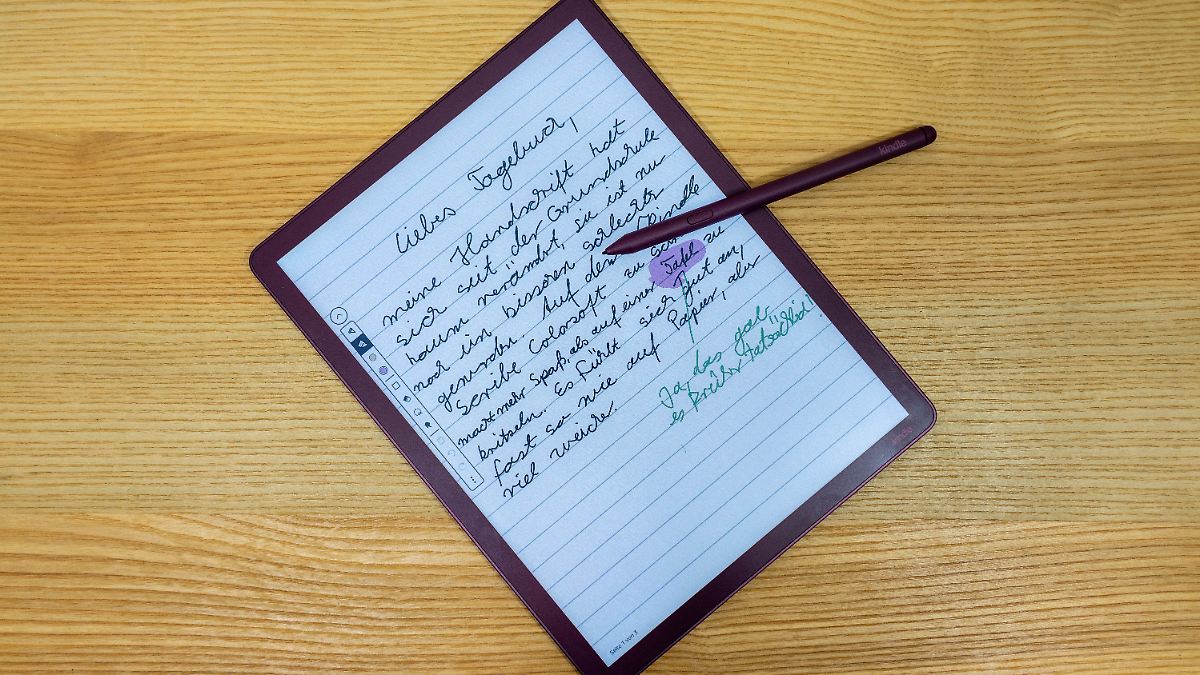 Liebes Tagebuch,
meine Handschrift hat
sich seit der Grundschule
kaum verändert, sie ist nur
noch ein bisschen schlechter
geworden. Auf dem Kindle
Scribe Colorsoft zu
macht mehr Spaß, als auf einer Tafel zu
kritzeln. Es fühlt sich gut an,
fast so wie auf Papier, aber
viel weicher.
Ja, das gab
es früher tatsächlich!
Seite 1 von 3
kindle
kindle